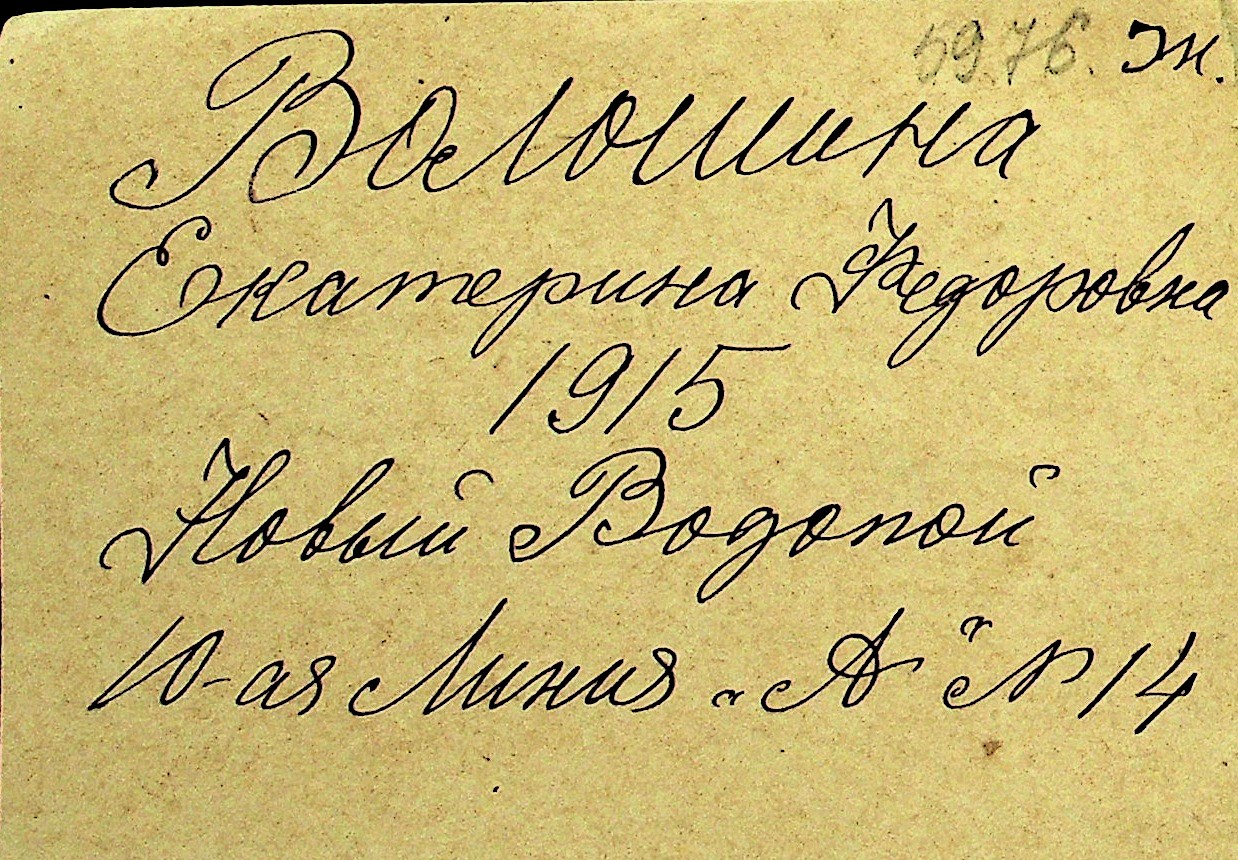 5976. Ж.
Волошина
Екатерина Федоровна
1915
Новый Водопой
10-ая Линия "А" № 14